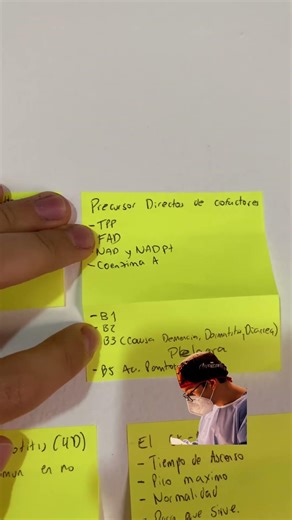 Precursor Directos de cofactores
- TPP
- FAD
- NAD y NADP+
- Coenzima A
- B1
- B2
B3 (Causa Demencia, Dermatitis, Diarrea)
Pelagra
- B5 Ac.
titis (4D)
mun en no
El
- Tiempo de Ascenso
- Pico maximo
- Normalidad
- Para que sirve.